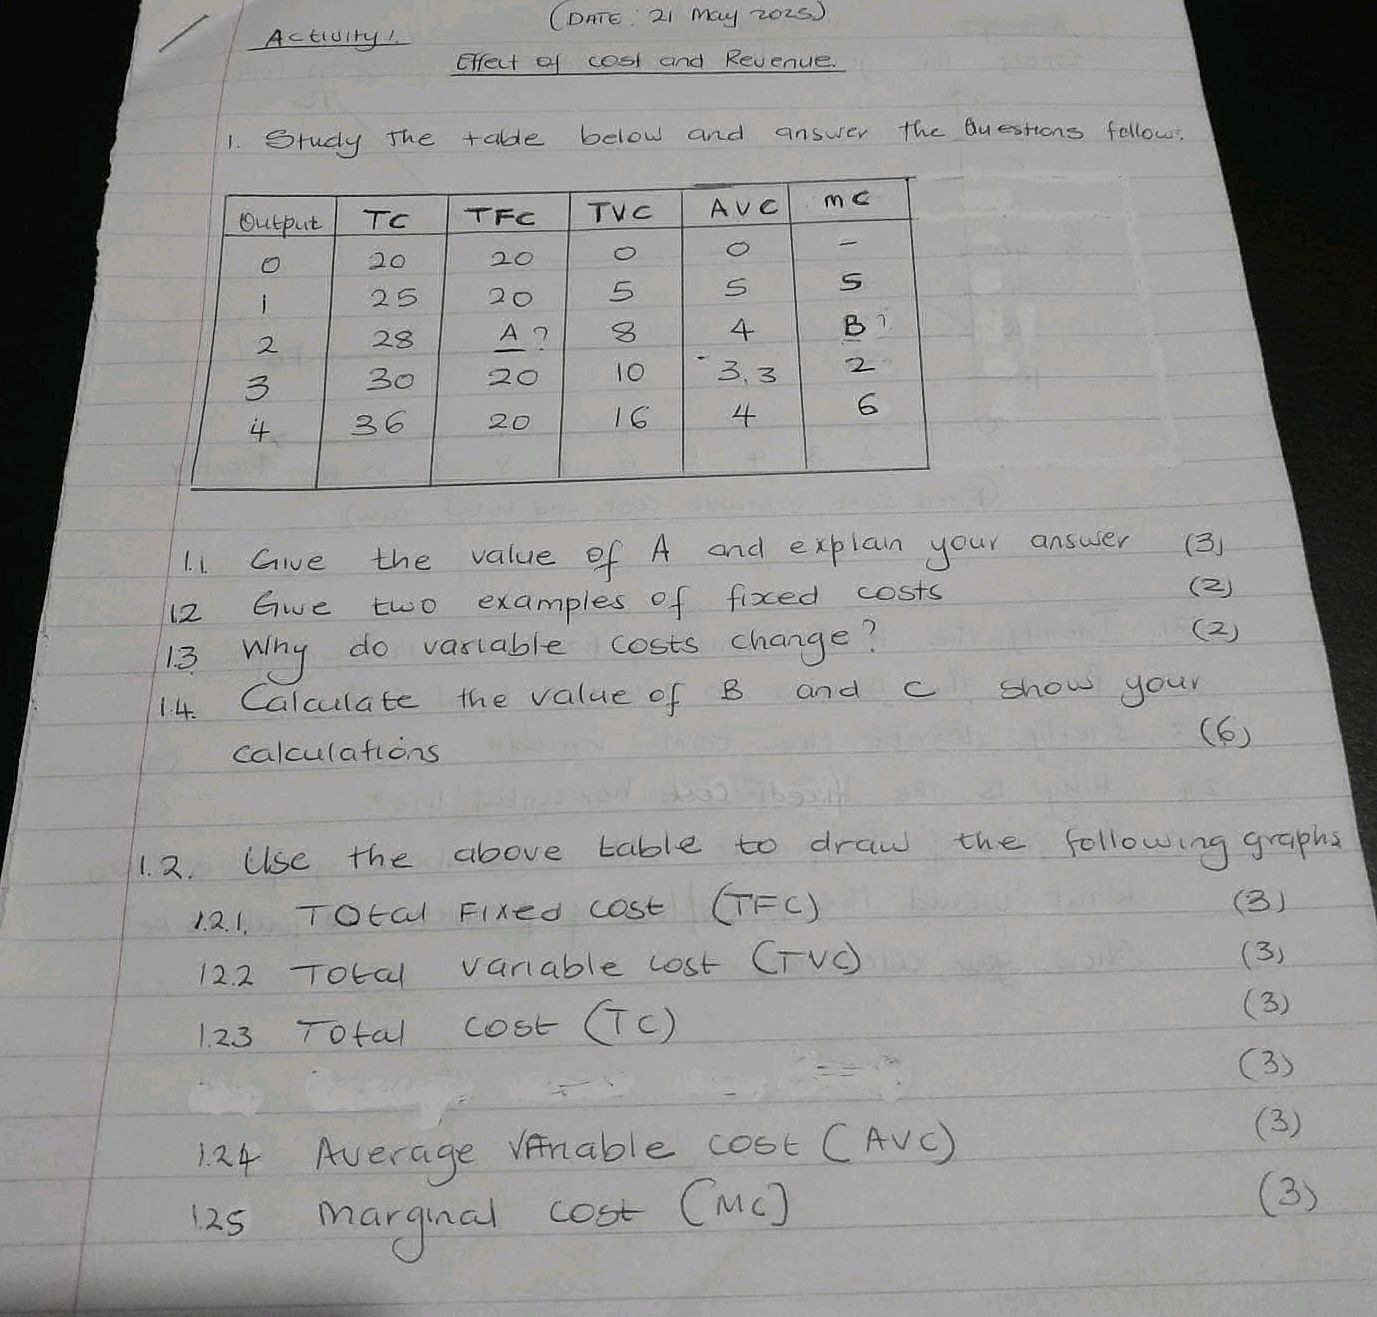 (DATE: 21 May 2025)
Activity 1.
Effect of cost and Revenue.
1. Study The table below and answer the Questions follows.
Output TC TFC TVC AVC MC
0 20 20 0 0 -
1 25 20 5 5 5
2 28 A? 8 4 B?
3 30 20 10 3,3 2
4 36 20 16 4 6
1.1. Give the value of A and explain your answer (3)
1.2 Give two examples of fixed costs (2)
1.3. Why do variable costs change? (2)
1.4. Calculate the value of B and C show your
calculations (6)
1.2. Use the above table to draw the following graphs
1.2.1. Total Fixed cost (TFC) (3)
1.2.2 Total variable cost (TVC) (3)
1.2.3 Total cost (TC) (3)
(3)
1.2.4 Average Variable cost (AVC) (3)
1.2.5 Marginal cost (MC) (3)